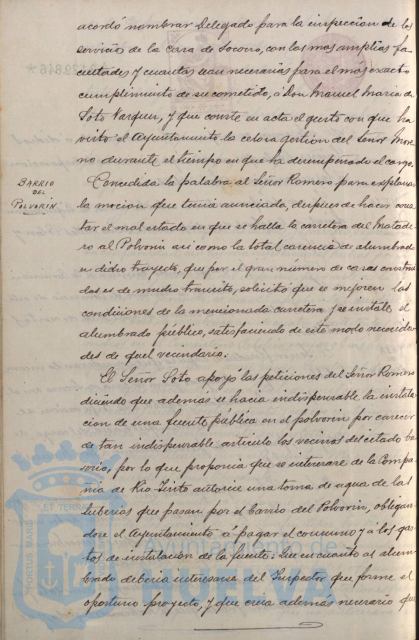 acordó nombrar Delegado para la inspeccion de los
servicios de la casa de Socorro, con las mas amplias fa-
cultades y cuantas sean necesarias para el más exacto
cumplimiento de su cometido, á Don Manuel Maria de
Soto Vazquez, y que conste en acta el gusto con que ha
visto el Ayuntamiento la celosa gestion del Señor More-
no durante el tiempo en que ha desempeñado el cargo.
BARRIO
DEL
POLVORÍN
Concedida la palabra al Señor Romero para esplanar
la mocion que tenia anunciada, despues de hacer cons-
tar el mal estado en que se halla la carretera del Matade-
ro al Polvorin asi como la total carencia de alumbrado
en dicho trayecto, que por el gran número de casas construi-
das es de mucho transito, solicitó que se mejoren las
condiciones de la mencionada carretera y se instale el
alumbrado público, satisfaciendo de este modo necesida-
des de aquel vecindario.
El Señor Soto apoyó las peticiones del Señor Romero
diciendo que ademas se hacia indispensable la instala-
cion de una fuente pública en el polvorin por carecer
de tan indispensable articulo los vecinos del citado ba-
rrio, por lo que proponia que se interesare de la Compa-
ñia de Rio-Tinto autorice una toma de agua de las
tuberias que pasan por el Barrio del Polvorin, obligan-
dose el Ayuntamiento á pagar el consumo y á los gas-
tos de instalacion de la fuente: Que en cuanto al alum-
brado deberia interesarse del Inspector que forme el
oportuno proyecto, y que creia además necesario que
PORTUS MARIS
ET TERRAE
HUELVA